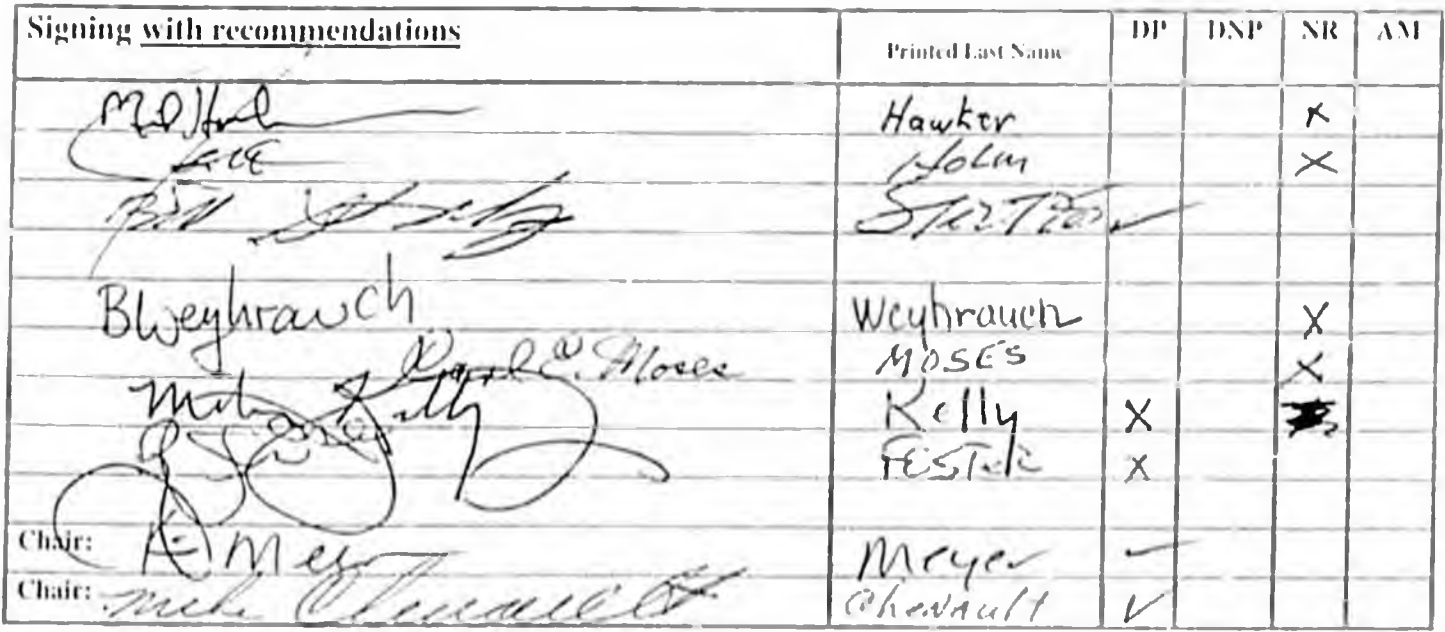 Signing with recommendations Printed Last Name DP DNP NR AM
Hawker X
Holm X
Bill Stoltze
BWeyhrauch Weyhrauch X
Carl E. Moses MOSES X
Mike Kelly Kelly X
FOSTER X
Chair: K Meyer Meyer ✓
Chair: Mike Chenault Chenault ✓